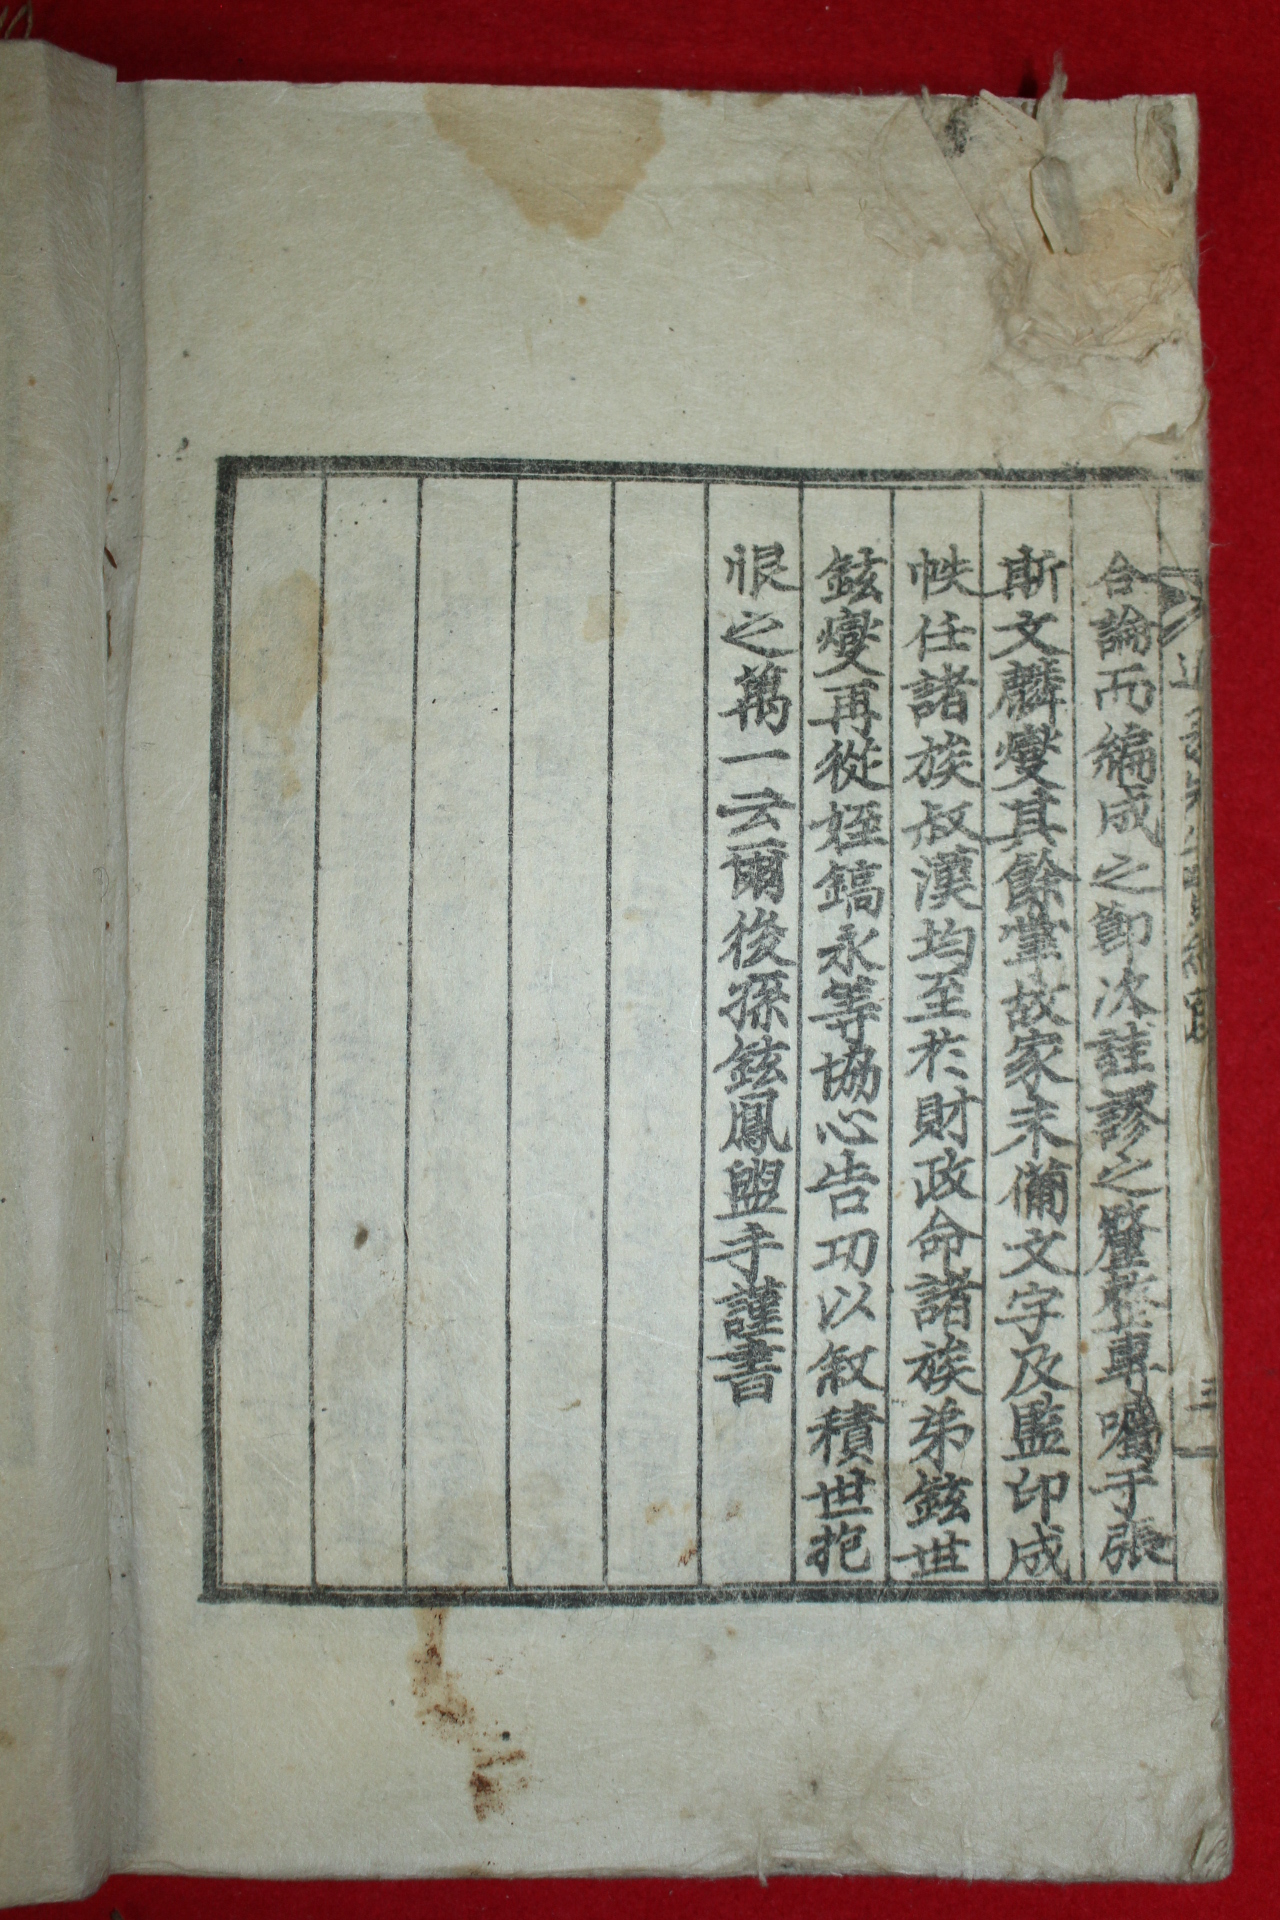 合論而編成之節次註謬之釐整專囑于張
斯文麟燮其餘掌故家未備文字及監印成
帙任諸族叔漢均至於財政命諸族弟鉉世
鉉燮再從姪鎬永等協心告功以叙積世抱
恨之萬一云爾後孫鉉鳳盥手謹書